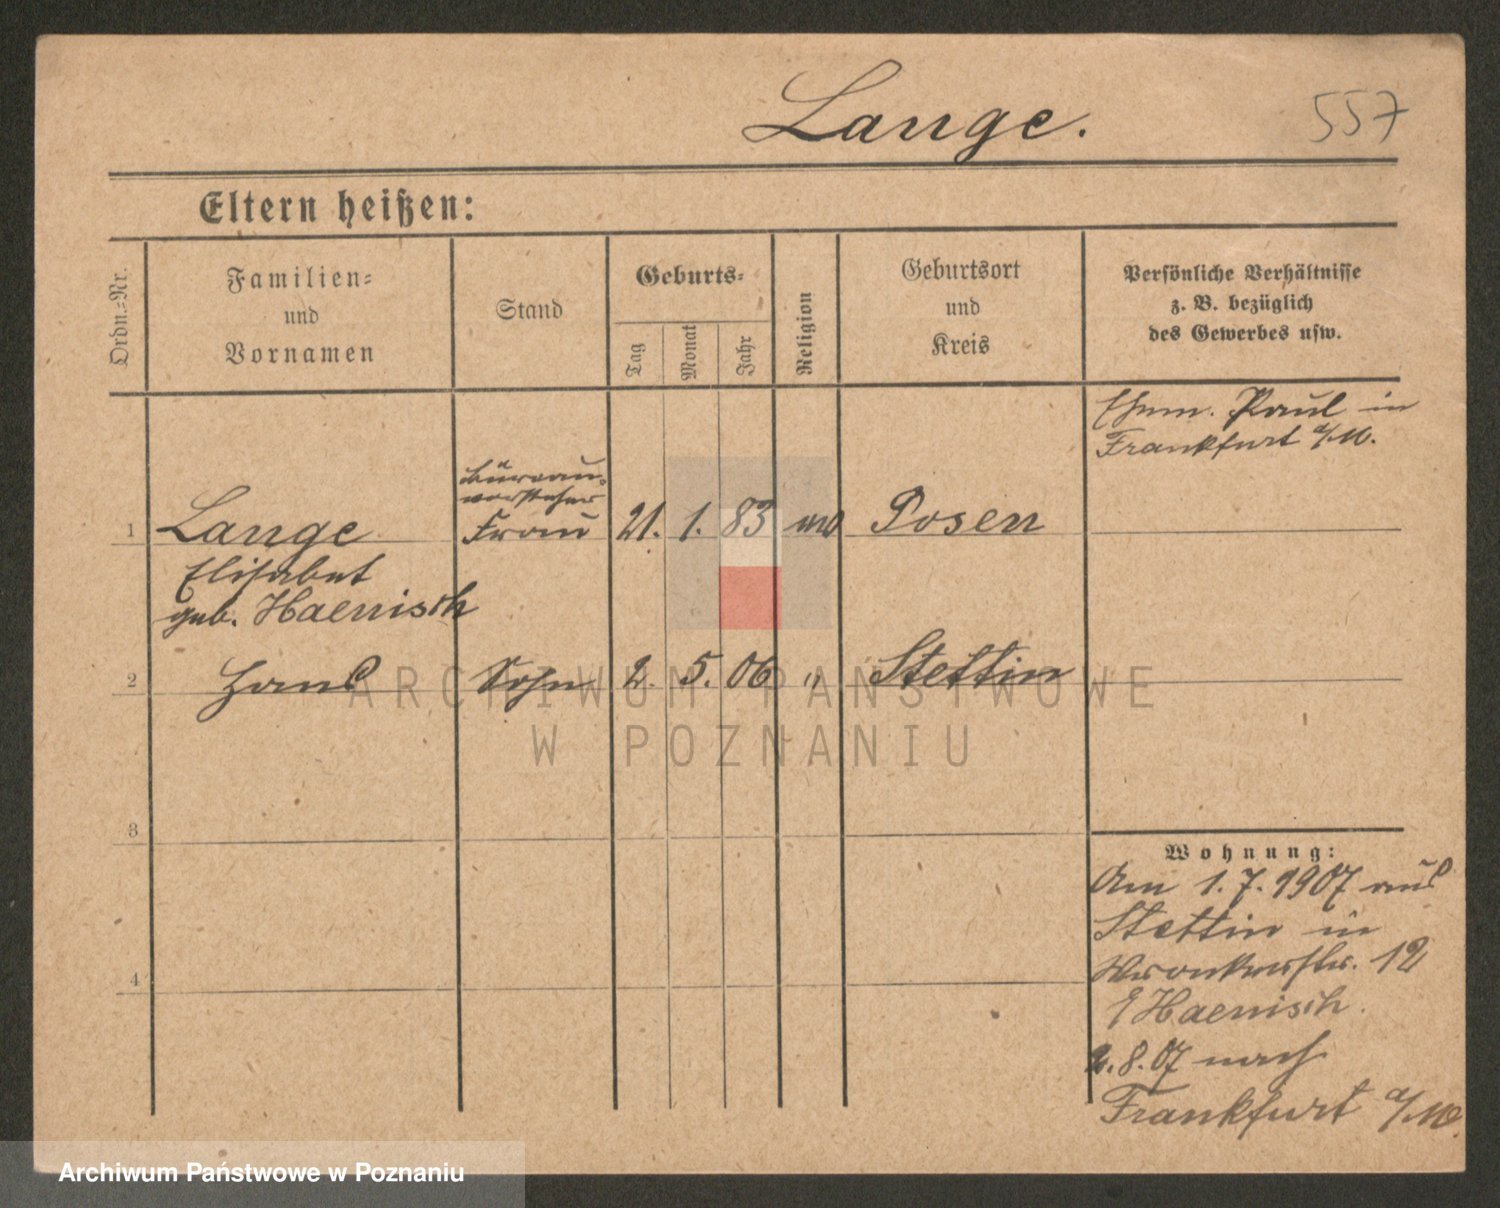 Lange.
557
Eltern heißen:
Ordn.-Nr.
Familien-
und
Vornamen
Stand
Geburts-
Tag
Monat
Jahr
Religion
Geburtsort
und
Kreis
Persönliche Verhältnisse
z. B. bezüglich
des Gewerbes usw.
Ehem. Paul in
Frankfurt a/M.
Büreau-
vorsteher
1 Lange Frau 21. 1. 83 ev Posen
Elisabet
geb. Haenisch
2 Hans Sohn 2. 5. 06 " Stettin
ARCHIWUM PAŃSTWOWE
W POZNANIU
3
Wohnung:
Am 1.7.1907 aus
Stettin in
Wronkerstr. 12
b/Haenisch.
4
2.8.07 nach
Frankfurt a/M.
Archiwum Państwowe w Poznaniu